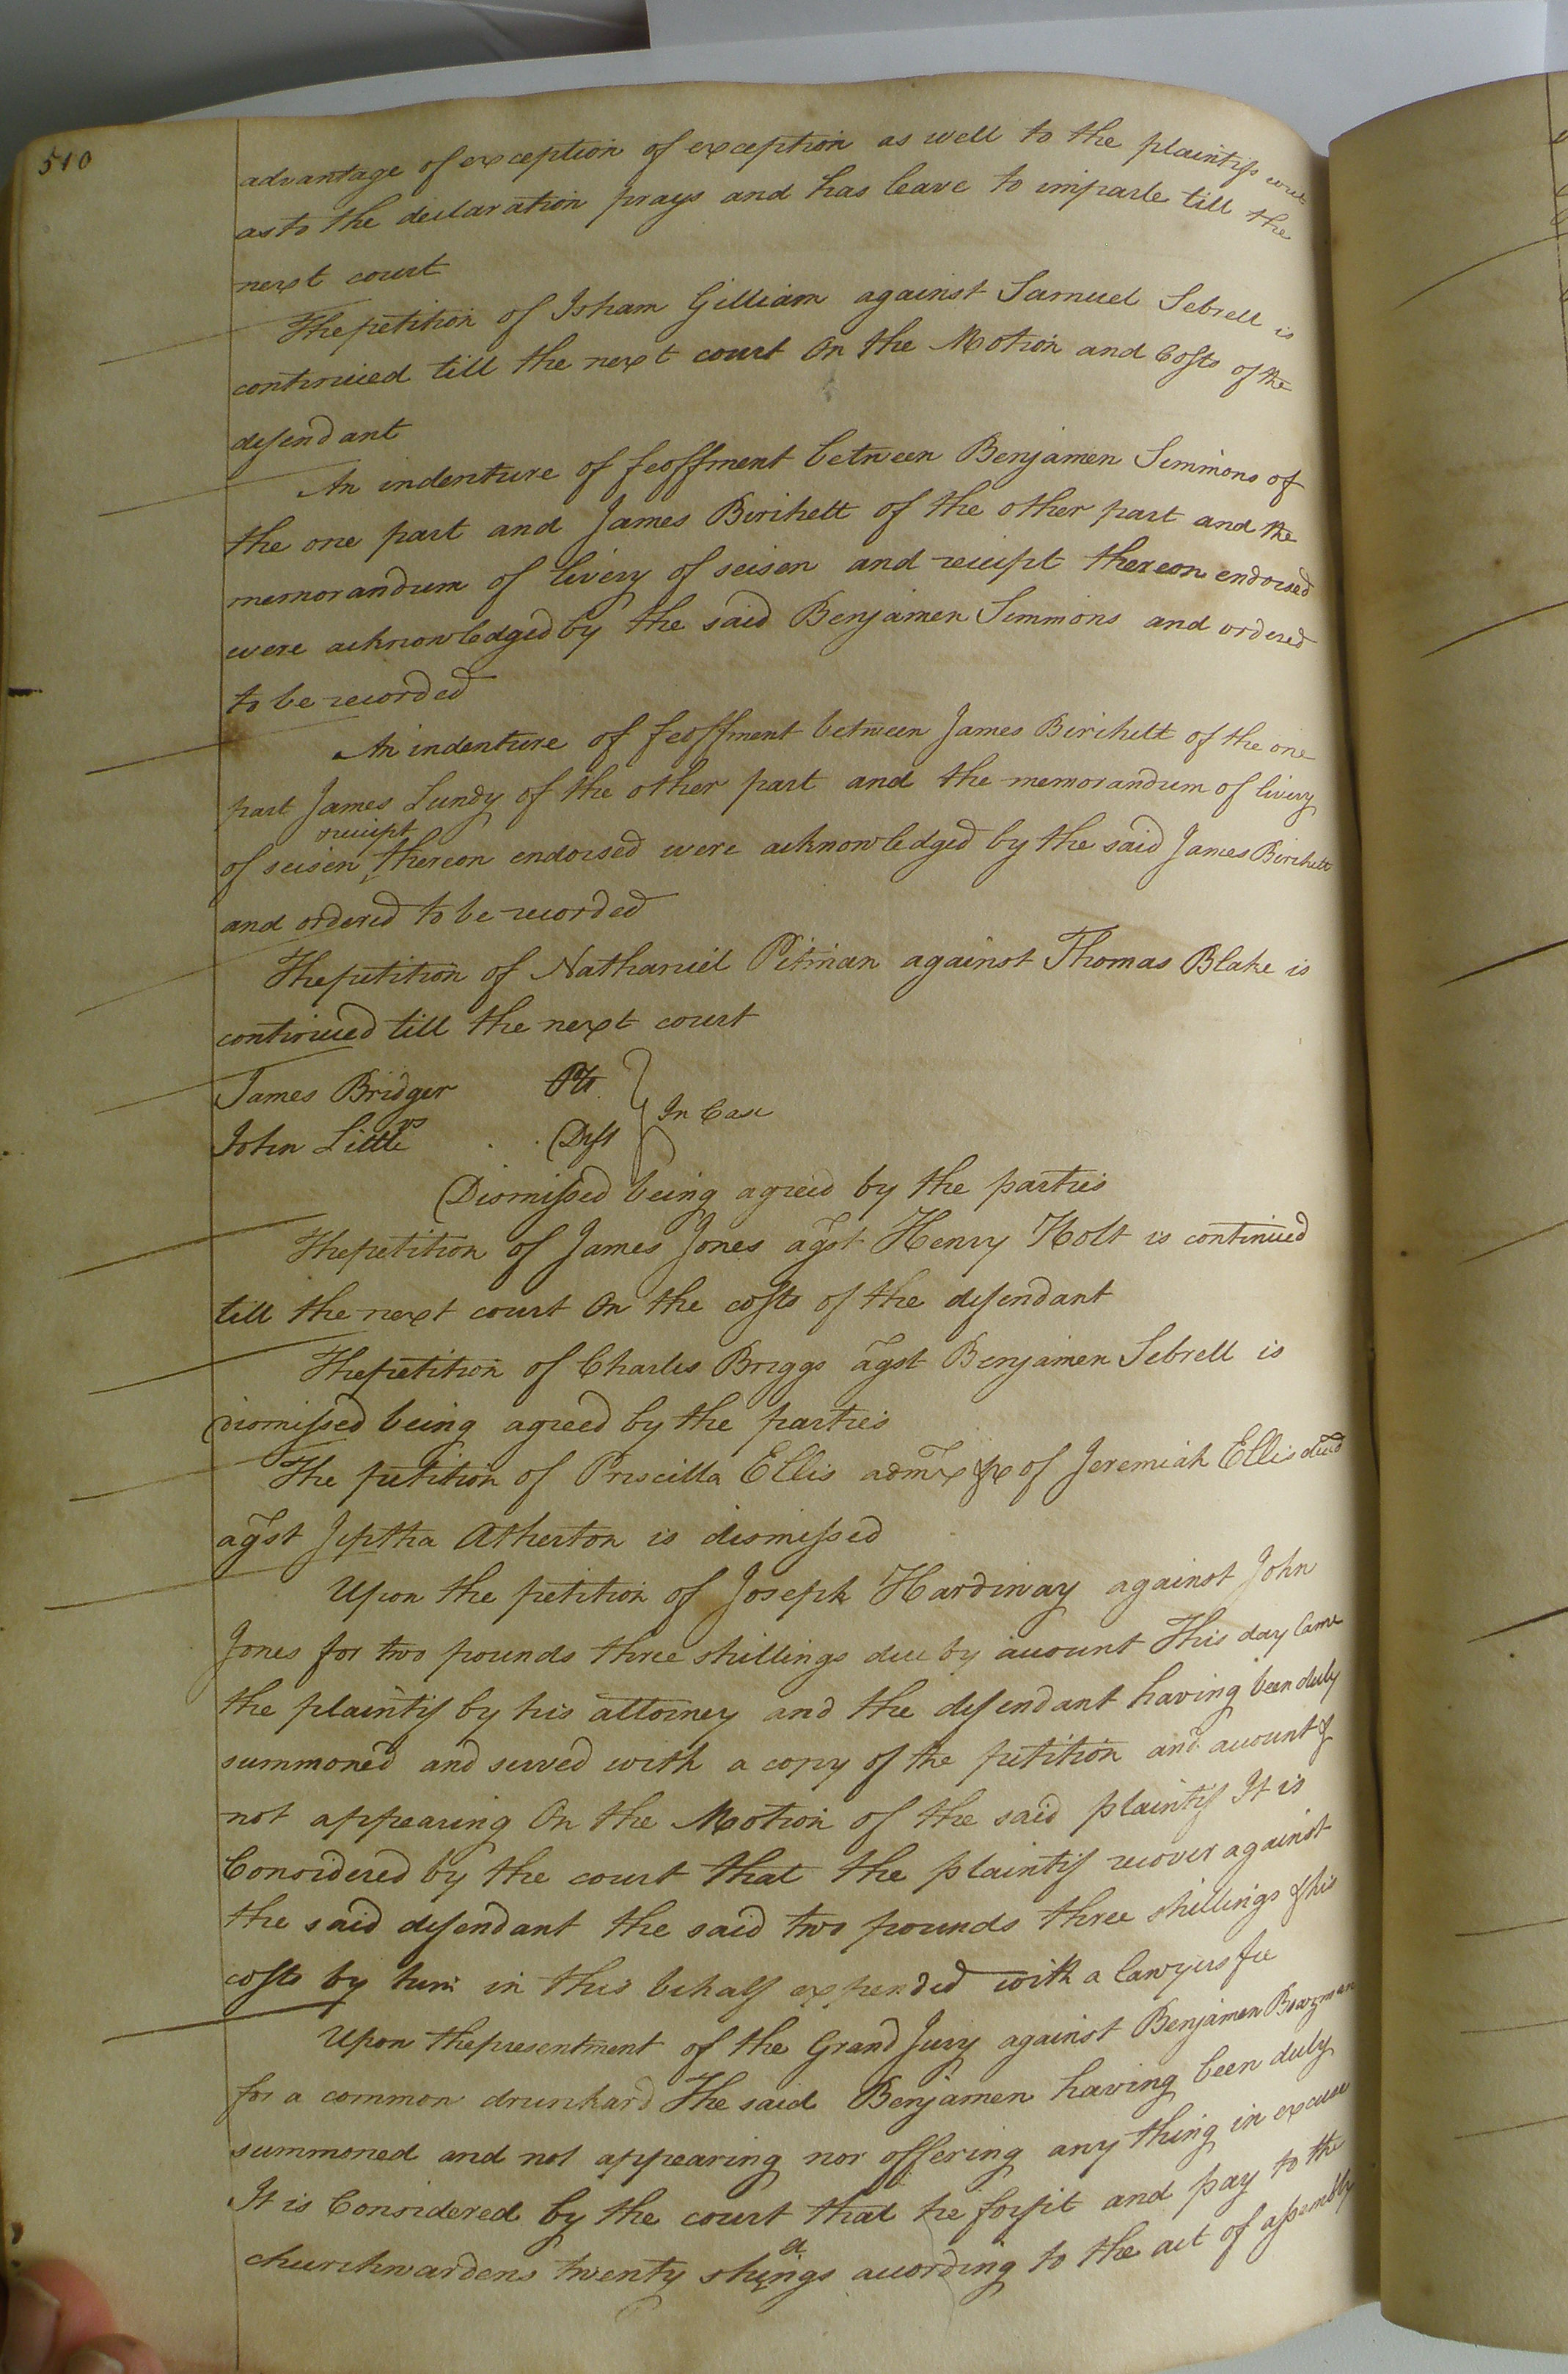 510
advantage of exception of exception as well to the plaintifs writ
as to the declaration prays and has leave to imparle till the
next court
The petition of Isham Gilliam against Samuel Sebrell is
continued till the next court On the Motion and Costs of the
defendant
An indenture of feoffment between Benjamen Simmons of
the one part and James Birchett of the other part and the
memorandum of livery of seisen and receipt thereon endorsed
were acknowledged by the said Benjamen Simmons and ordered
to be recorded
An indenture of feoffment between James Birchett of the one
part James Lundy of the other part and the memorandum of livery
receipt
of seisen thereon endorsed were acknowledged by the said James Birchett
and ordered to be recorded
The petition of Nathaniel Pitman against Thomas Blake is
continued till the next court
James Bridger Plt
vs In Case
John Little Deft
Dismissed being agreed by the parties
The petition of James Jones agst Henry Holt is continued
till the next court On the costs of the defendant
The petition of Charles Briggs agst Benjamen Sebrell is
dismissed being agreed by the parties
The petition of Priscilla Ellis admrx &c of Jeremiah Ellis decd
agst Jeptha Atherton is dismissed
Upon the petition of Joseph Hardiway against John
Jones for two pounds three shillings due by account This day Came
the plaintif by his attorney and the defendant having been duly
summoned and served with a copy of the petition and account &
not appearing On the Motion of the said plaintif It is
Considered by the court that the plaintif recover against
the said defendant the said two pounds three shillings & his
costs by him in this behalf expended with a lawyers fee
Upon the presentment of the Grand Jury against Benjamen Boazman
for a common drunkard The said Benjamen having been duly
summoned and not appearing nor offering any thing in excuse
It is Considered by the court that he forfit and pay to the
churchwardens twenty shings according to the act of assembly